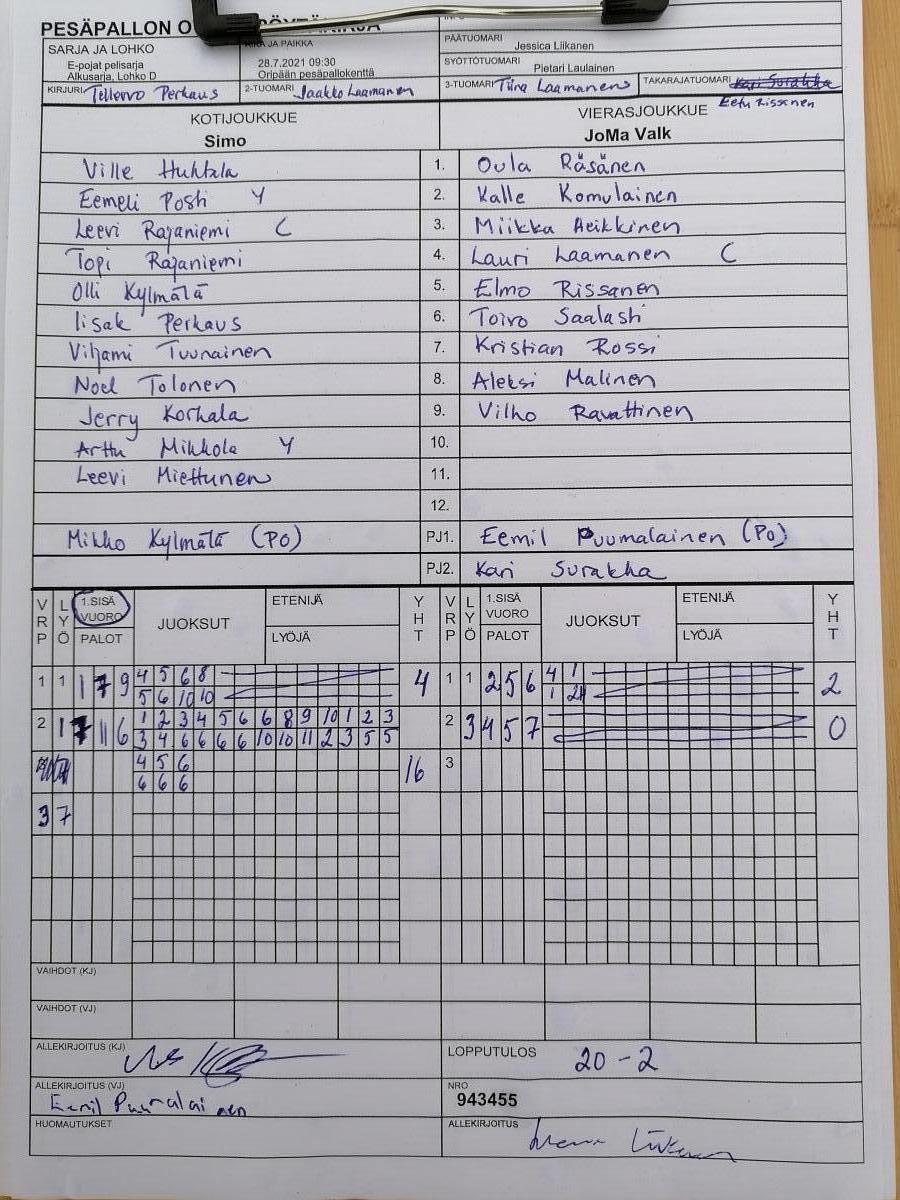 PESÄPALLON O
SARJA JA LOHKO
E-pojat pelisarja
Alkusarja, Lohko D
AIKA JA PAIKKA
28.7.2021 09:30
Oripään pesäpallokenttä
PÄÄTUOMARI
Jessica Liikanen
SYÖTTÖTUOMARI
Pietari Laulainen
KIRJURI Tellervo Perkaus
2-TUOMARI Jaakko Laamanen
3-TUOMARI Tiina Laamanen
TAKARAJATUOMARI Kari Surakka
Eetu Rissanen
KOTIJOUKKUE
Simo
VIERASJOUKKUE
JoMa Valk
Ville Huhtala 1. Oula Räsänen
Eemeli Posti Y 2. Kalle Komulainen
Leevi Rajaniemi C 3. Miikka Heikkinen
Topi Rajaniemi 4. Lauri Laamanen C
Olli Kylmälä 5. Elmo Rissanen
Iisak Perkaus 6. Toivo Saalasti
Viljami Tuunainen 7. Kristian Rossi
Noel Tolonen 8. Aleksi Malinen
Jerry Korhala 9. Vilho Ravattinen
Arttu Mikkola Y 10.
Leevi Miettunen 11.
12.
Mikko Kylmälä (PO) PJ1. Eemil Puumalainen (PO)
PJ2. Kari Surakka
VRP LYÖ 1.SISÄ VUORO PALOT JUOKSUT ETENIJÄ LYÖJÄ YHT VRP LYÖ 1.SISÄ VUORO PALOT JUOKSUT ETENIJÄ LYÖJÄ YHT
1 1 1 7 9 4 5 6 8 4 1 1 2 5 6 4 1 2
5 6 10 10 1 2
2 1 7 11 6 1 2 3 4 5 6 6 8 9 10 1 2 3 2 3 4 5 7 0
3 4 6 6 6 6 10 10 11 2 3 5 5
4 5 6 16 3
6 6 6
3 7
VAIHDOT (KJ)
VAIHDOT (VJ)
ALLEKIRJOITUS (KJ)
LOPPUTULOS 20-2
ALLEKIRJOITUS (VJ)
Eemil Puumalainen
NRO
943455
HUOMAUTUKSET
ALLEKIRJOITUS